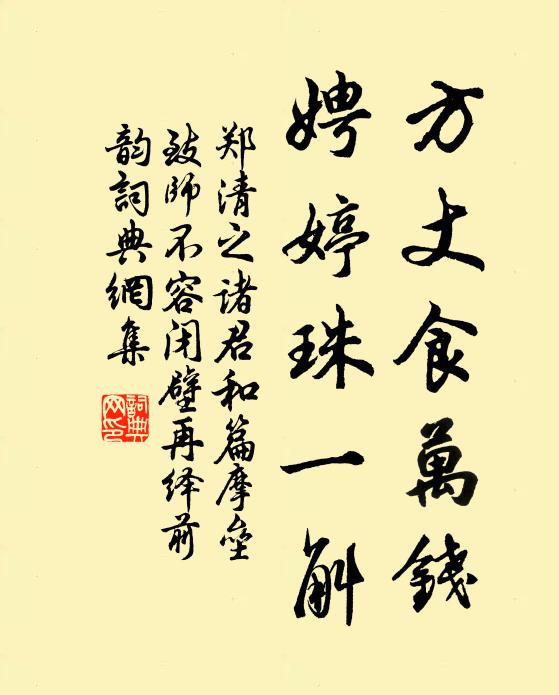 方丈食萬錢
娉婷珠一斛
郑清之诸君和篇摩垒
致師不容闭壁再绎前
韵詞典網集
詞典
网印